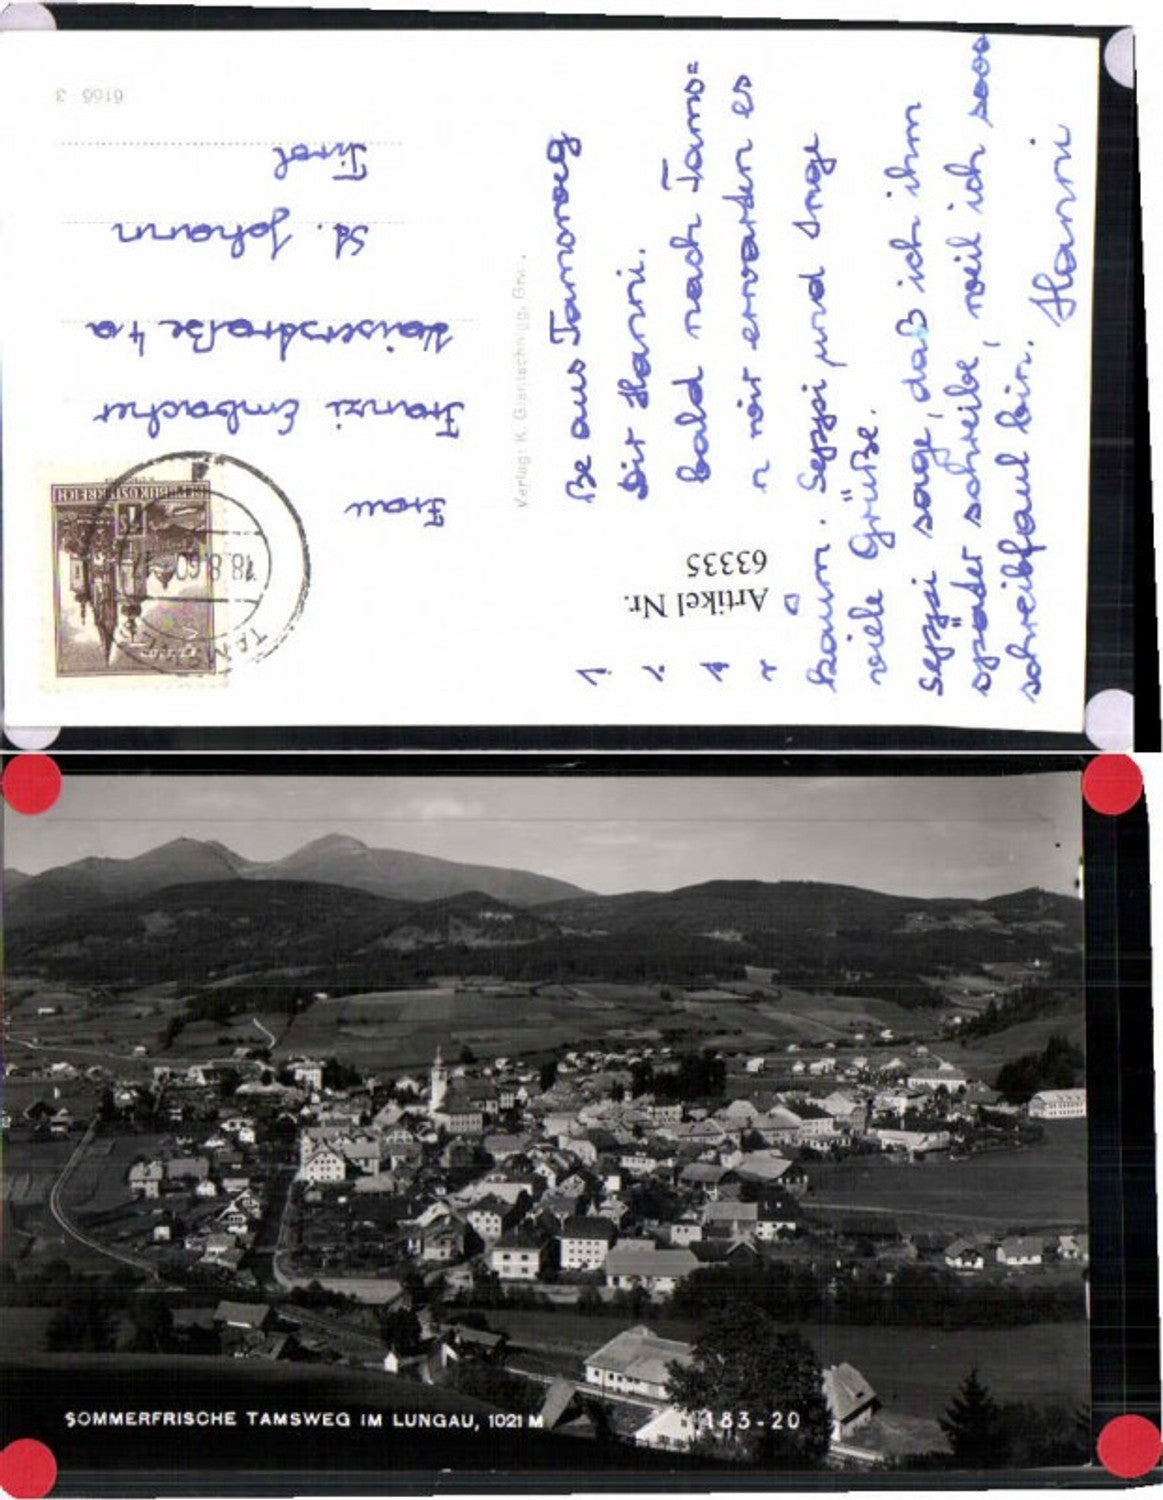 6166 3
Frau
Franzi Embacher
Kaiserstraße 4a
St. Johann
Tirol
Verlag: K. Glantschnigg, Gm.
REPUBLIK ÖSTERREICH
1S
18.8.60
TAMSWEG
Artikel Nr.
63335
ße aus Tamsweg
Dir Hanni.
bald nach Tams=
n wir erwarten es
kaum. Seppi und Inge
viele Grüße.
Seppi sage, daß ich ihm
später schreibe, weil ich sooo
schreibfaul bin.
Hanni
SOMMERFRISCHE TAMSWEG IM LUNGAU, 1021 M
183-20